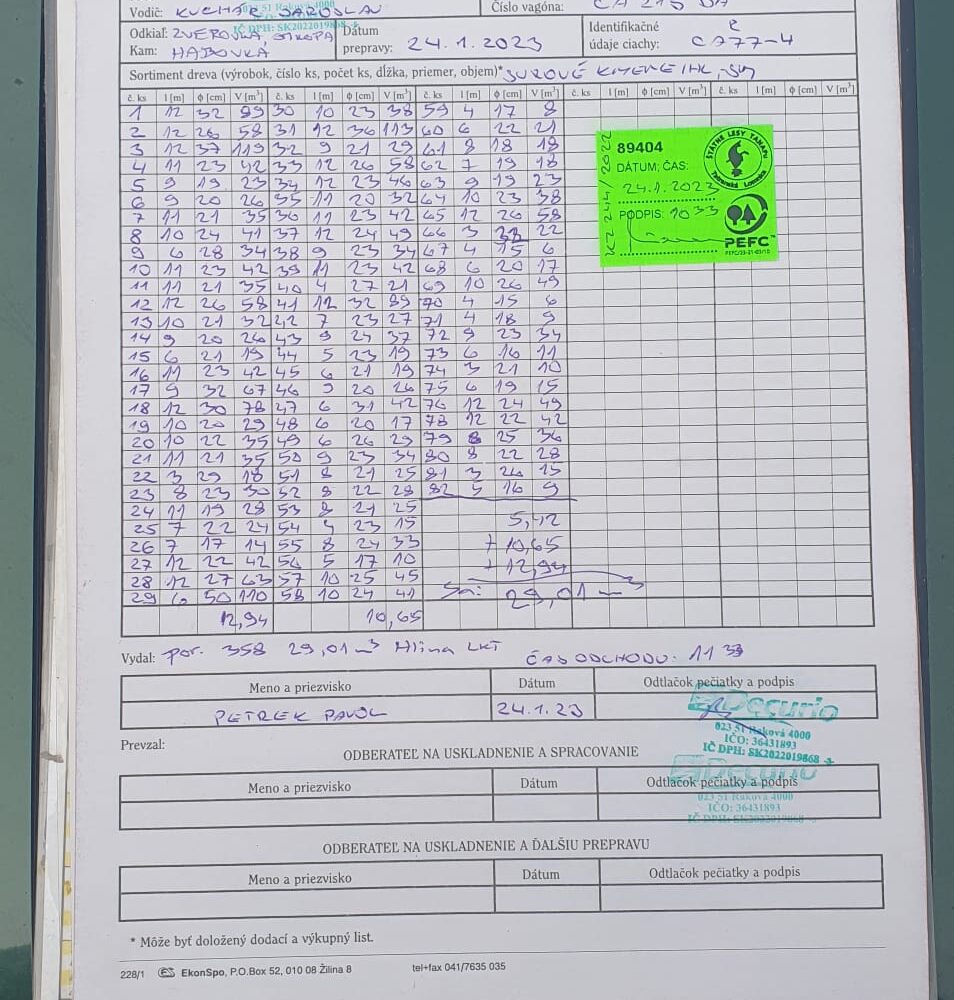 Vodič: KUCHÁR JAROSLAV
Číslo vagóna:
Odkiaľ: ZVEROVKA,
Dátum prepravy: 24.1.2023
Identifikačné údaje ciachy: R CA77-4
Kam: HABOVKA
Sortiment dreva (výrobok, číslo ks, počet ks, dĺžka, priemer, objem)* SUROVÉ KMENE IHL.
č. ks l [m] ϕ [cm] V [m³] č. ks l [m] ϕ [cm] V [m³] č. ks l [m] ϕ [cm] V [m³] č. ks l [m] ϕ [cm] V [m³] č. ks l [m] ϕ [cm] V [m³]
1 12 32 89 30 10 23 38 59 4 17 8
2 12 26 58 31 12 36 113 60 6 22 21
3 12 37 119 32 9 21 29 61 8 18 18
4 11 23 42 33 12 26 58 62 7 19 18
5 9 19 23 34 12 23 46 63 9 19 23
6 9 20 26 35 11 20 32 64 10 23 38
7 11 21 35 36 11 23 42 65 12 26 58
8 10 24 41 37 12 24 49 66 3 22
9 6 28 34 38 9 23 34 67 4 15 6
10 11 23 42 39 11 23 42 68 6 20 17
11 11 21 35 40 4 27 21 69 10 26 49
12 12 26 58 41 12 32 89 70 4 15 6
13 10 21 32 42 7 23 27 71 4 18 9
14 9 20 26 43 9 24 37 72 9 23 34
15 6 21 19 44 5 23 19 73 6 16 11
16 11 23 42 45 6 21 19 74 3 21 10
17 9 32 67 46 9 20 26 75 6 19 15
18 12 30 78 47 6 31 42 76 12 24 49
19 10 20 29 48 6 20 17 78 12 22 42
20 10 22 35 49 6 26 29 79 8 25 36
21 11 21 35 50 9 23 34 80 8 22 28
22 3 29 18 51 8 21 25 81 3 26 15
23 8 23 30 52 8 22 28 82 5 16 9
24 11 19 28 53 8 21 25
25 7 22 24 54 4 23 15
26 7 17 14 55 8 24 33
27 12 22 42 56 5 17 10
28 12 27 63 57 10 25 45
29 6 50 110 58 10 24 41
12,94 10,65
5,42
+ 10,65
+ 12,94
29,01 m³
89404
DÁTUM; ČAS:
24.1.2023
PODPIS: 10 33
KZ 244/2022
ŠTÁTNE LESY TANAPU
Tatranská Lomnica
PEFC™
Vydal: por. 358 29,01 m³ Hlina LKT
ČAS ODCHODU: 11 33
Meno a priezvisko Dátum Odtlačok pečiatky a podpis
PETREK PAVOL 24.1.23
Decurio
023 51 Raková 4000
IČO: 36431893
IČ DPH: SK2022019868
Prevzal:
ODBERATEĽ NA USKLADNENIE A SPRACOVANIE
Meno a priezvisko Dátum Odtlačok pečiatky a podpis
Decurio
023 51 Raková 4000
IČO: 36431893
IČ DPH: SK2022019868
ODBERATEĽ NA USKLADNENIE A ĎALŠIU PREPRAVU
Meno a priezvisko Dátum Odtlačok pečiatky a podpis
* Môže byť doložený dodací a výkupný list.
228/1 EkonSpo, P.O.Box 52, 010 08 Žilina 8 tel+fax 041/7635 035